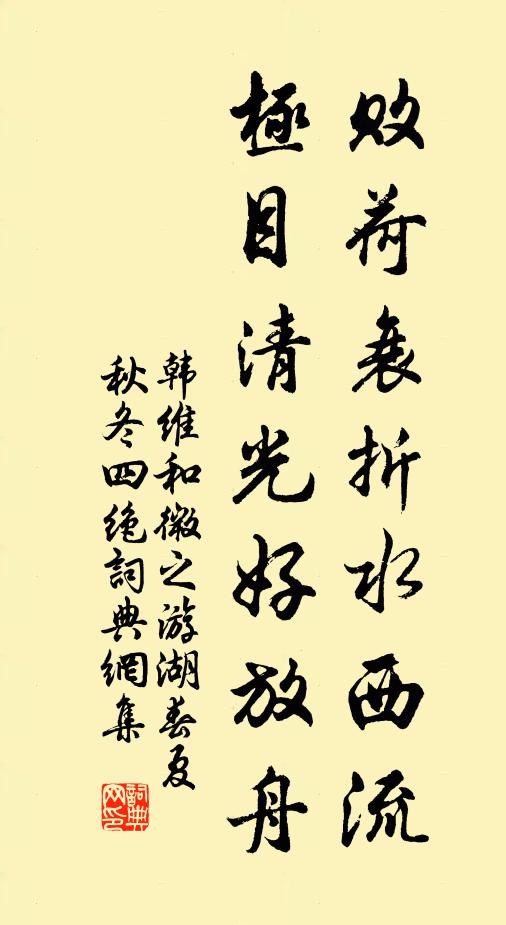 败荷衰折水西流
極目清光好放舟
韩维和微之游湖春夏
秋冬四绝詞典網集
詞典
网印